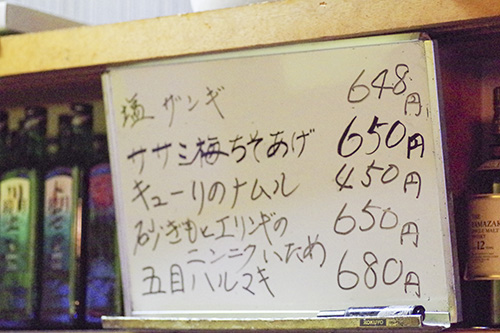 塩ザンギ 648円
ササミ梅ちそあげ 650円
キューリのナムル 450円
砂ぎもとエリンギの
ニンニクいため 650円
五目ハルマキ 680円
KOKUYO
YAMAZAKI
SINGLE MALT
WHISKY
12